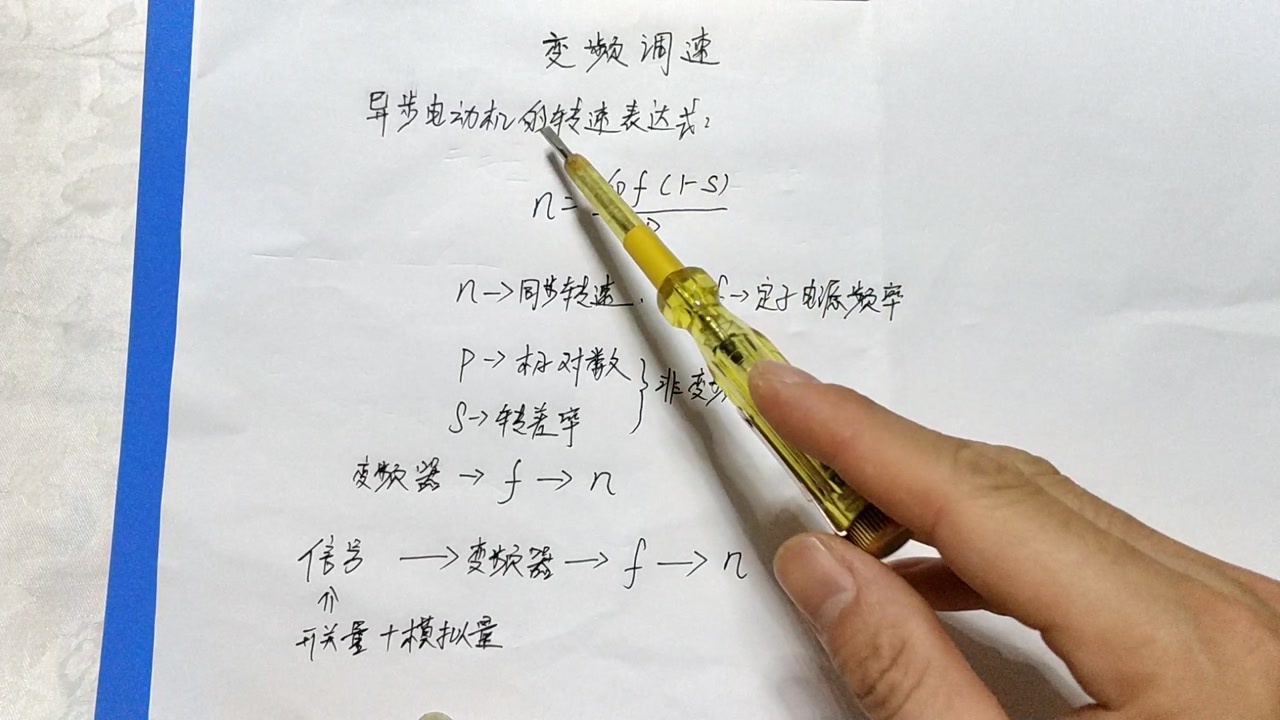 变频调速
异步电动机的转速表达式:
n= f(1-S)
n→同步转速. f→定子电源频率
P→极对数
S→转差率 } 非变
变频器→f→n
信号→变频器→f→n
⇑
开关量+模拟量